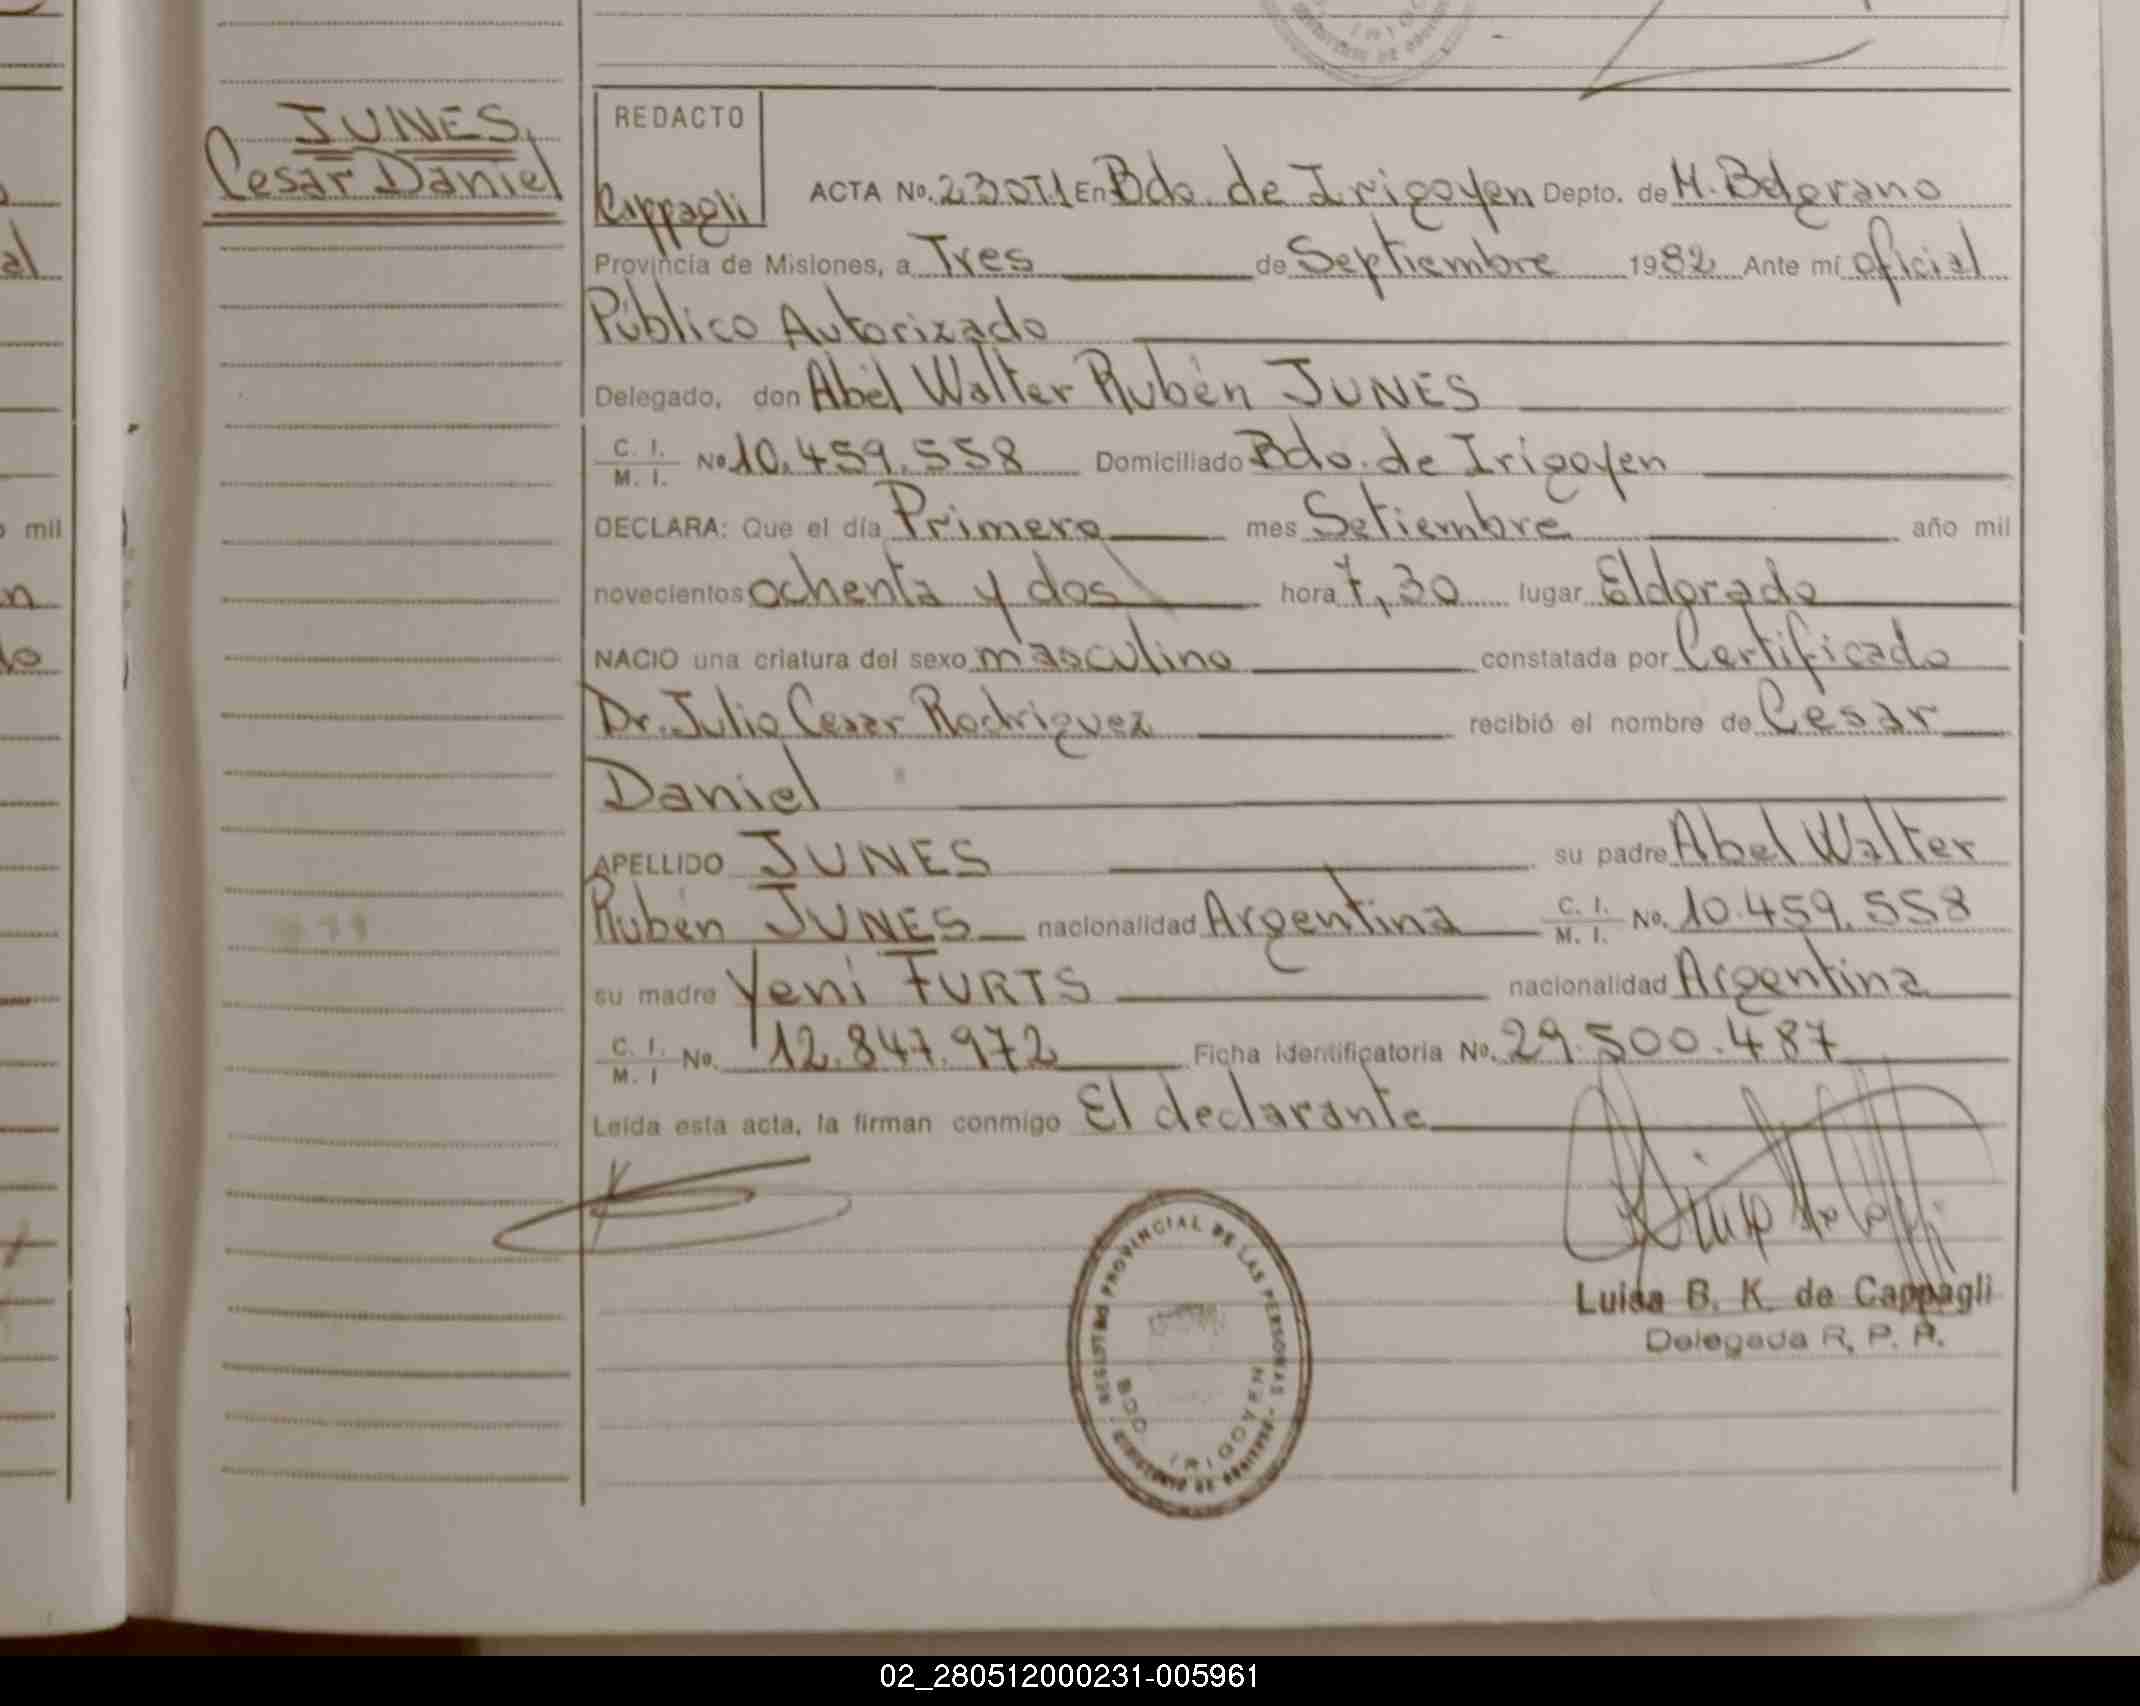 JUNES,
Cesar Daniel
REDACTO
Cappagli
ACTA No. 230T1 En Bdo. de Irigoyen Depto. de M. Belgrano
Provincia de Misiones, a Tres de Septiembre 1982 Ante mí oficial
Público Autorizado
Delegado, don Abel Walter Rubén JUNES
C. I. / M. I. No 10.459.558 Domiciliado Bdo. de Irigoyen
DECLARA: Que el día Primero mes Setiembre año mil
novecientos ochenta y dos hora 7,30 lugar Eldorado
NACIO una criatura del sexo masculino constatada por Certificado
Dr. Julio Cesar Rodriguez recibió el nombre de Cesar
Daniel
APELLIDO JUNES su padre Abel Walter
Rubén JUNES nacionalidad Argentina C. I. / M. I. No. 10.459.558
su madre Yeni FURTS nacionalidad Argentina
C. I. / M. I No. 12.847.972 Ficha identificatoria No. 29.500.487
Leída esta acta, la firman conmigo El declarante
REGISTRO PROVINCIAL DE LAS PERSONAS
BDO IRIGOYEN
Luisa B. K. de Cappagli
Delegada R. P. P.
mil
02_280512000231-005961